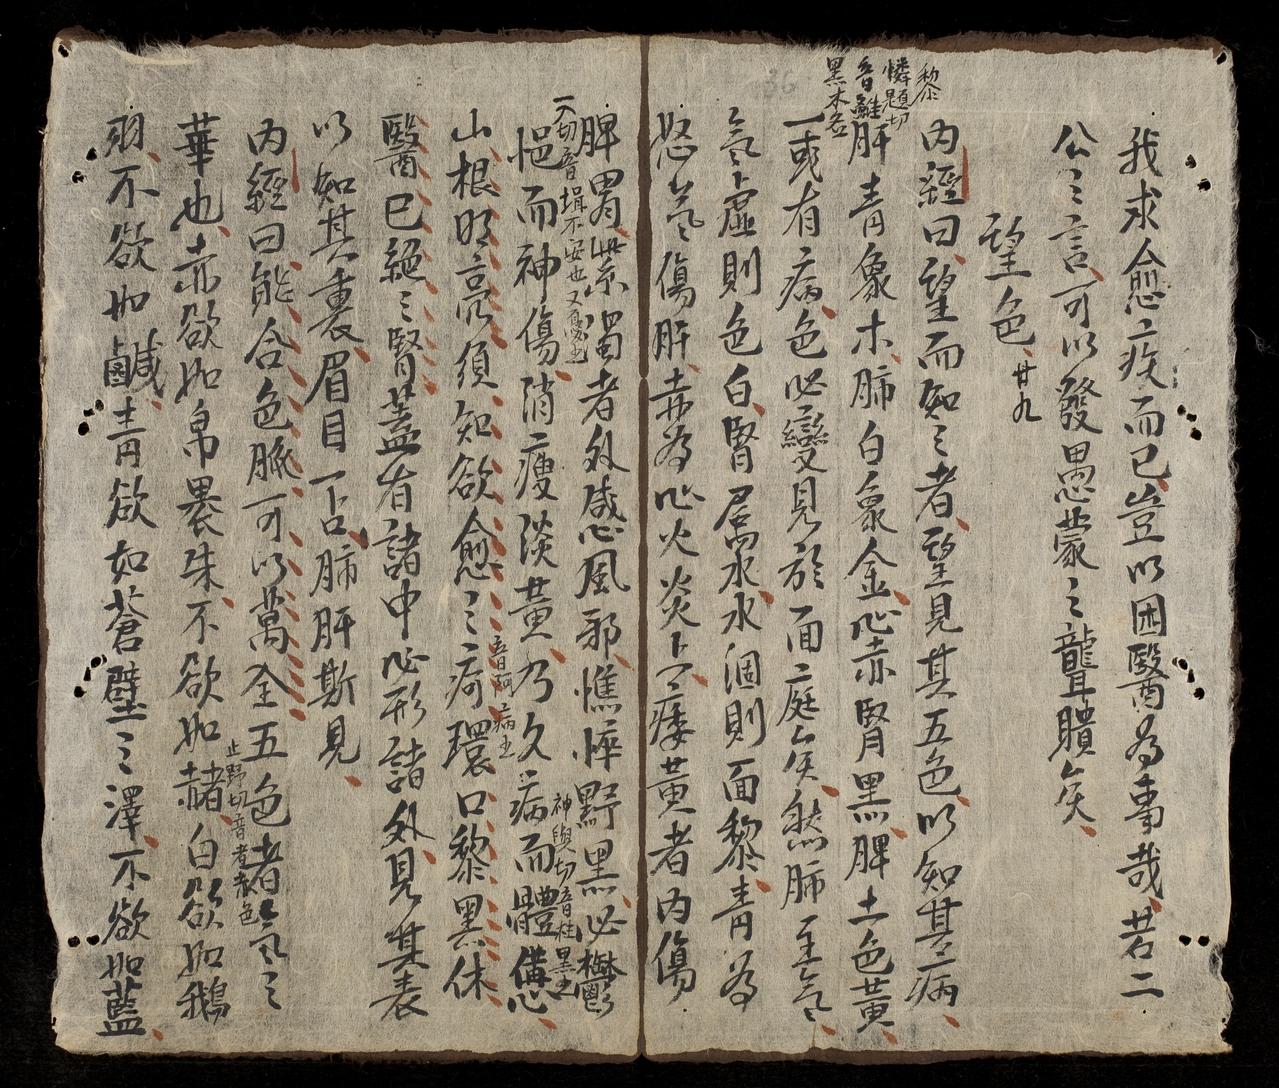 我求愈疾而已豈以困醫為事哉若二
公之言可以發愚蒙之聾瞶矣
望色 廿九
內經曰望而知之者望見其五色以知其病
肝青象木肺白象金心赤腎黑脾土色黃
一或有病色必變見於面庭矣然肺主氣
氣虛則色白腎屬水水涸則面黎青為
怒氣傷肝赤為心火炎上痿黃者內傷
脾胃紫濁者外感風邪憔悴黑必鬱
悒而神傷消瘦淡黃乃久病而體備
山根明亮須知欲愈之疴環口黎黑休
醫已絕之腎蓋有諸中必形諸外見其表
以知其裏眉目一占肺肝斯見
內經曰能合色脈可以萬全五色者氣之
華也赤欲如帛裹朱不欲如赭白欲如鵝
羽不欲如鹹青欲如蒼壁之澤不欲如藍
黎
憐題切
音離
黑木名
切音揖不安也又憂也
音阿病也
黑也
止野切音者赤色